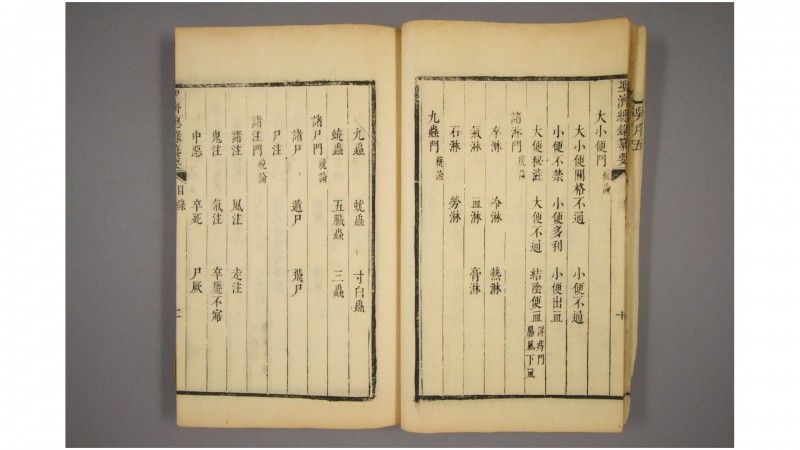 聖濟總錄纂要
大小便門 統論
大小便關格不通 小便不通
小便不禁 小便多利 小便出血
大便秘澁 大便不通 結陰便血 詳痔門腸風下血
諸淋門 統論
卒淋 冷淋 熱淋
氣淋 血淋 膏淋
石淋 勞淋
九蟲門 統論
九蟲 蚘蟲 寸白蟲
蟯蟲 五臟蟲 三蟲
諸尸門 統論
諸尸 遁尸 飛尸
尸注
諸注門 統論
諸注 風注 走注
鬼注 氣注 卒魘不寤
中惡 卒死 尸厥
目錄